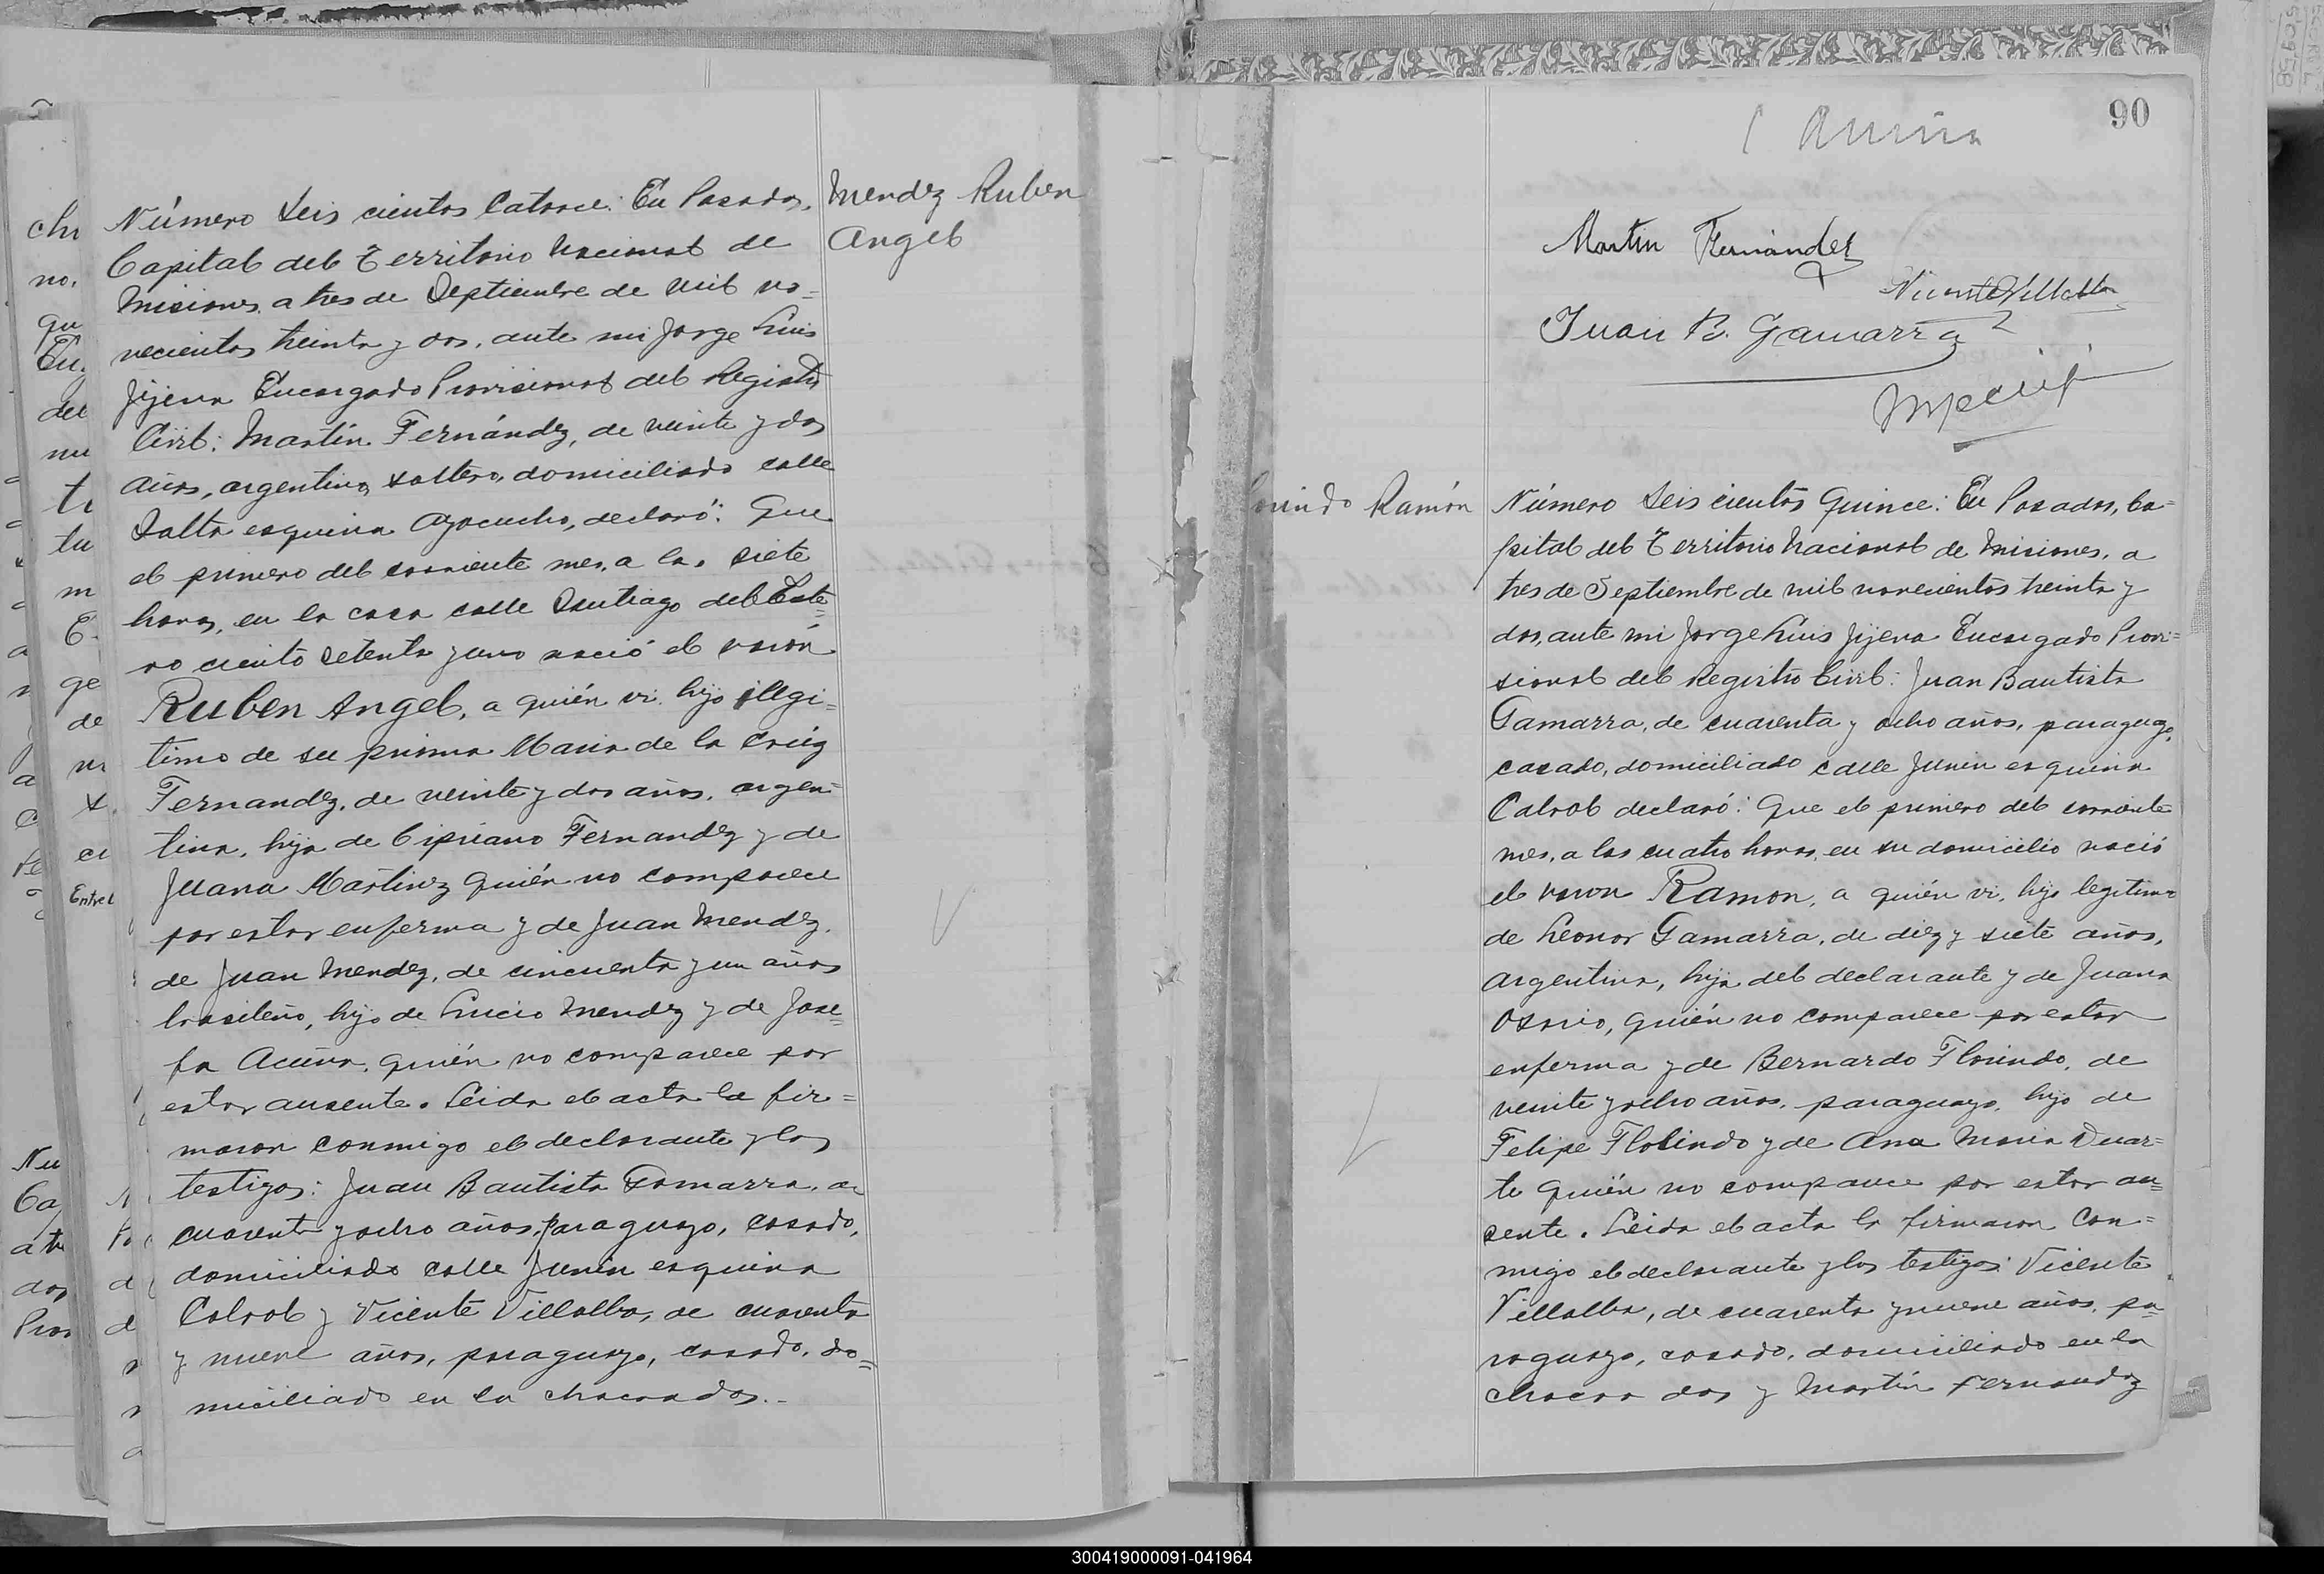 Mendez Ruben
Angel
Número Seis cientos Catorce: En Posadas,
Capital del Territorio Nacional de
Misiones, a tres de Septiembre de mil no=
vecientos treinta y dos, ante mi Jorge Luis
Jijena Encargado Provisional del Registro
Civil: Martín Fernández, de veinte y dos
años, argentino, soltero, domiciliado calle
Salta esquina Ayacucho, declaró: Que
el primero del corriente mes, a las siete
horas, en la casa calle Santiago del Este=
ro ciento setenta y uno nació el varón
Ruben Angel, a quién vi, hijo ilegi=
timo de su prima Maria de la Cruz
Fernandez, de veinte y dos años, argen=
tina, hija de Cipriano Fernandez y de
Juana Martinez quién no comparece
por estar enferma y de Juan Mendez,
de Juan Mendez, de cincuenta y un años
brasileño, hijo de Lucio Mendez y de Jose=
fa Acuña, quién no comparece por
estar ausente. Leida el acta la fir=
maron conmigo el declarante y los
testigos: Juan Bautista Gamarra, de
cuarenta y ocho años, paraguayo, casado,
domiciliado calle Junín esquina
Cabral y Vicente Villalba, de cuarenta
y nueve años, paraguayo, casado, do=
miciliado en la chacra dos.-
90
Martin Fernández
Vicente Villalba
Juan B. Gamarra
orindo Ramón
Número Seis cientos Quince: En Posadas, Ca=
pital del Territorio Nacional de Misiones, a
tres de Septiembre de mil novecientos treinta y
dos, ante mi Jorge Luis Jijena Encargado Provi=
sional del Registro Civil: Juan Bautista
Gamarra, de cuarenta y ocho años, paraguayo,
casado, domiciliado calle Junin esquina
Cabral declaró: Que el primero del corriente
mes, a las cuatro horas, en su domicilio nació
el varon Ramon, a quién vi, hijo legitimo
de Leonor Gamarra, de diez y siete años,
argentina, hija del declarante y de Juana
Osorio, quién no comparece por estar
enferma y de Bernardo Florindo, de
veinte y ocho años, paraguayo, hijo de
Felipe Florindo y de Ana Maria Duar=
te quién no comparece por estar au=
sente. Leida el acta la firmaron con=
migo el declarante y los testigos: Vicente
Villalba, de cuarenta y nueve años, pa=
raguayo, casado, domiciliado en la
chacra dos y Martín Fernandez
300419000091-041964